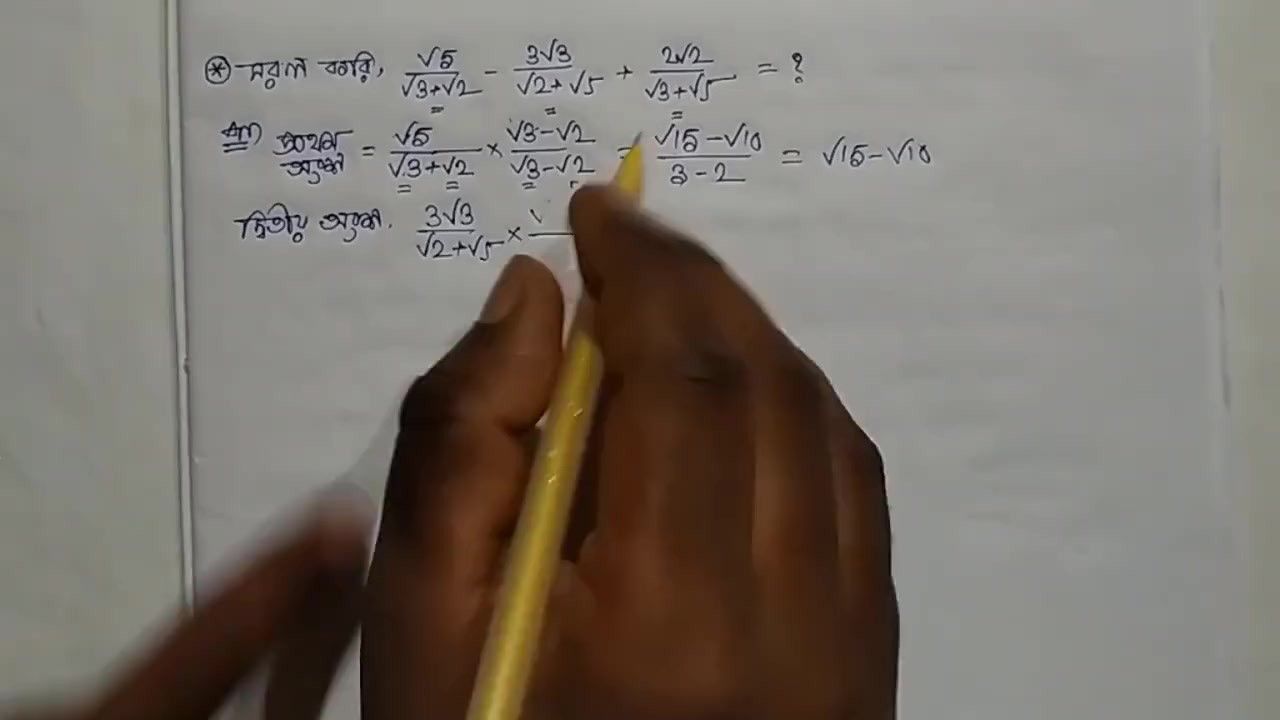 * সরল করি, √5/(√3+√2) - 3√3/(√2+√5) + 2√2/(√3+√5) = ?
প্রথম অংশ = √5/(√3+√2) × (√3-√2)/(√3-√2) = (√15-√10)/(3-2) = √15-√10
দ্বিতীয় অংশ. 3√3/(√2+√5) × √